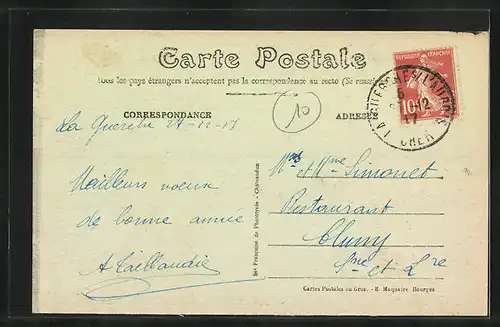 Carte Postale
Tous les pays étrangers n'acceptent pas la correspondance au recto (Se rense
CORRESPONDANCE
ADRESSE
10
RÉPUBLIQUE FRANÇAISE
10
LA GUERCHE S/ L'AUBOIS
6
12
17
CHER
La Guerche 27-12-17
Mailleurs voeux
de bonne année
A Taillandier
Mrs et Mme Simonet
Restaurant
Cluny
Sne et Lre
Sté Française de Phototypie - Châteaudun
Cartes Postales en Gros. - E. Maquaire Bourges